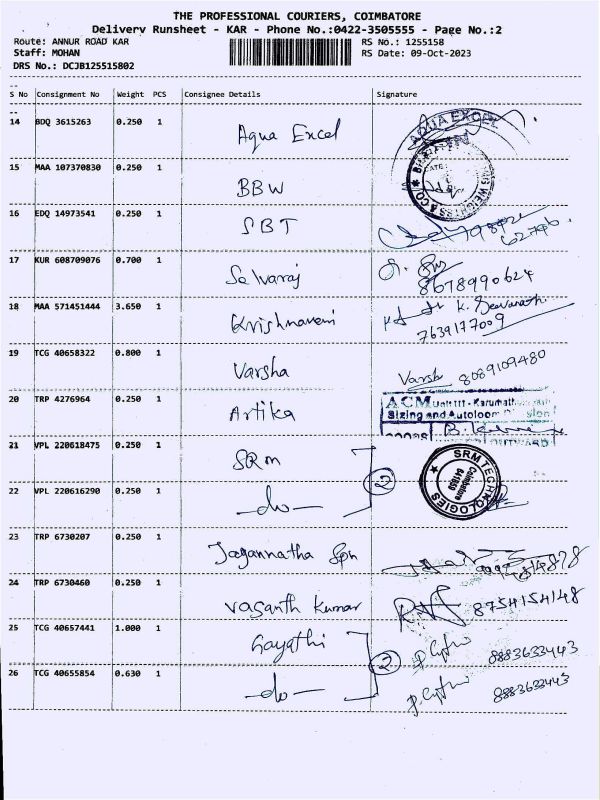 THE PROFESSIONAL COURIERS, COIMBATORE
Delivery Runsheet - KAR - Phone No.:0422-3505555 - Page No.:2
Route: ANNUR ROAD KAR RS No.: 1255158
Staff: MOHAN RS Date: 09-Oct-2023
DRS No.: DCJB125515802
S No Consignment No Weight PCS Consignee Details Signature
14 BDQ 3615263 0.250 1 Aqua Excel AQUA EXCEL
15 MAA 107370830 0.250 1 BBW
16 EDQ 14973541 0.250 1 SBT
17 KUR 608709076 0.700 1 Selvaraj 8678990624
18 MAA 571451444 3.650 1 Krishnaveni K. Jeevanath
7639177009
19 TCG 40658322 0.800 1 Varsha Varsh 8089109480
20 TRP 4276964 0.250 1 Artika ACM Unit III - Karumath
Sizing and Autoloom
21 VPL 220618475 0.250 1 SRM 2 SRM TECHNOLOGIES
Coimbatore
641659
22 VPL 220616290 0.250 1 -do-
23 TRP 6730207 0.250 1 Jagannatha Spn
24 TRP 6730460 0.250 1 Vasanth Kumar 8754154148
25 TCG 40657441 1.000 1 Gayathi 2 8883633443
26 TCG 40655854 0.630 1 -do- 8883633443